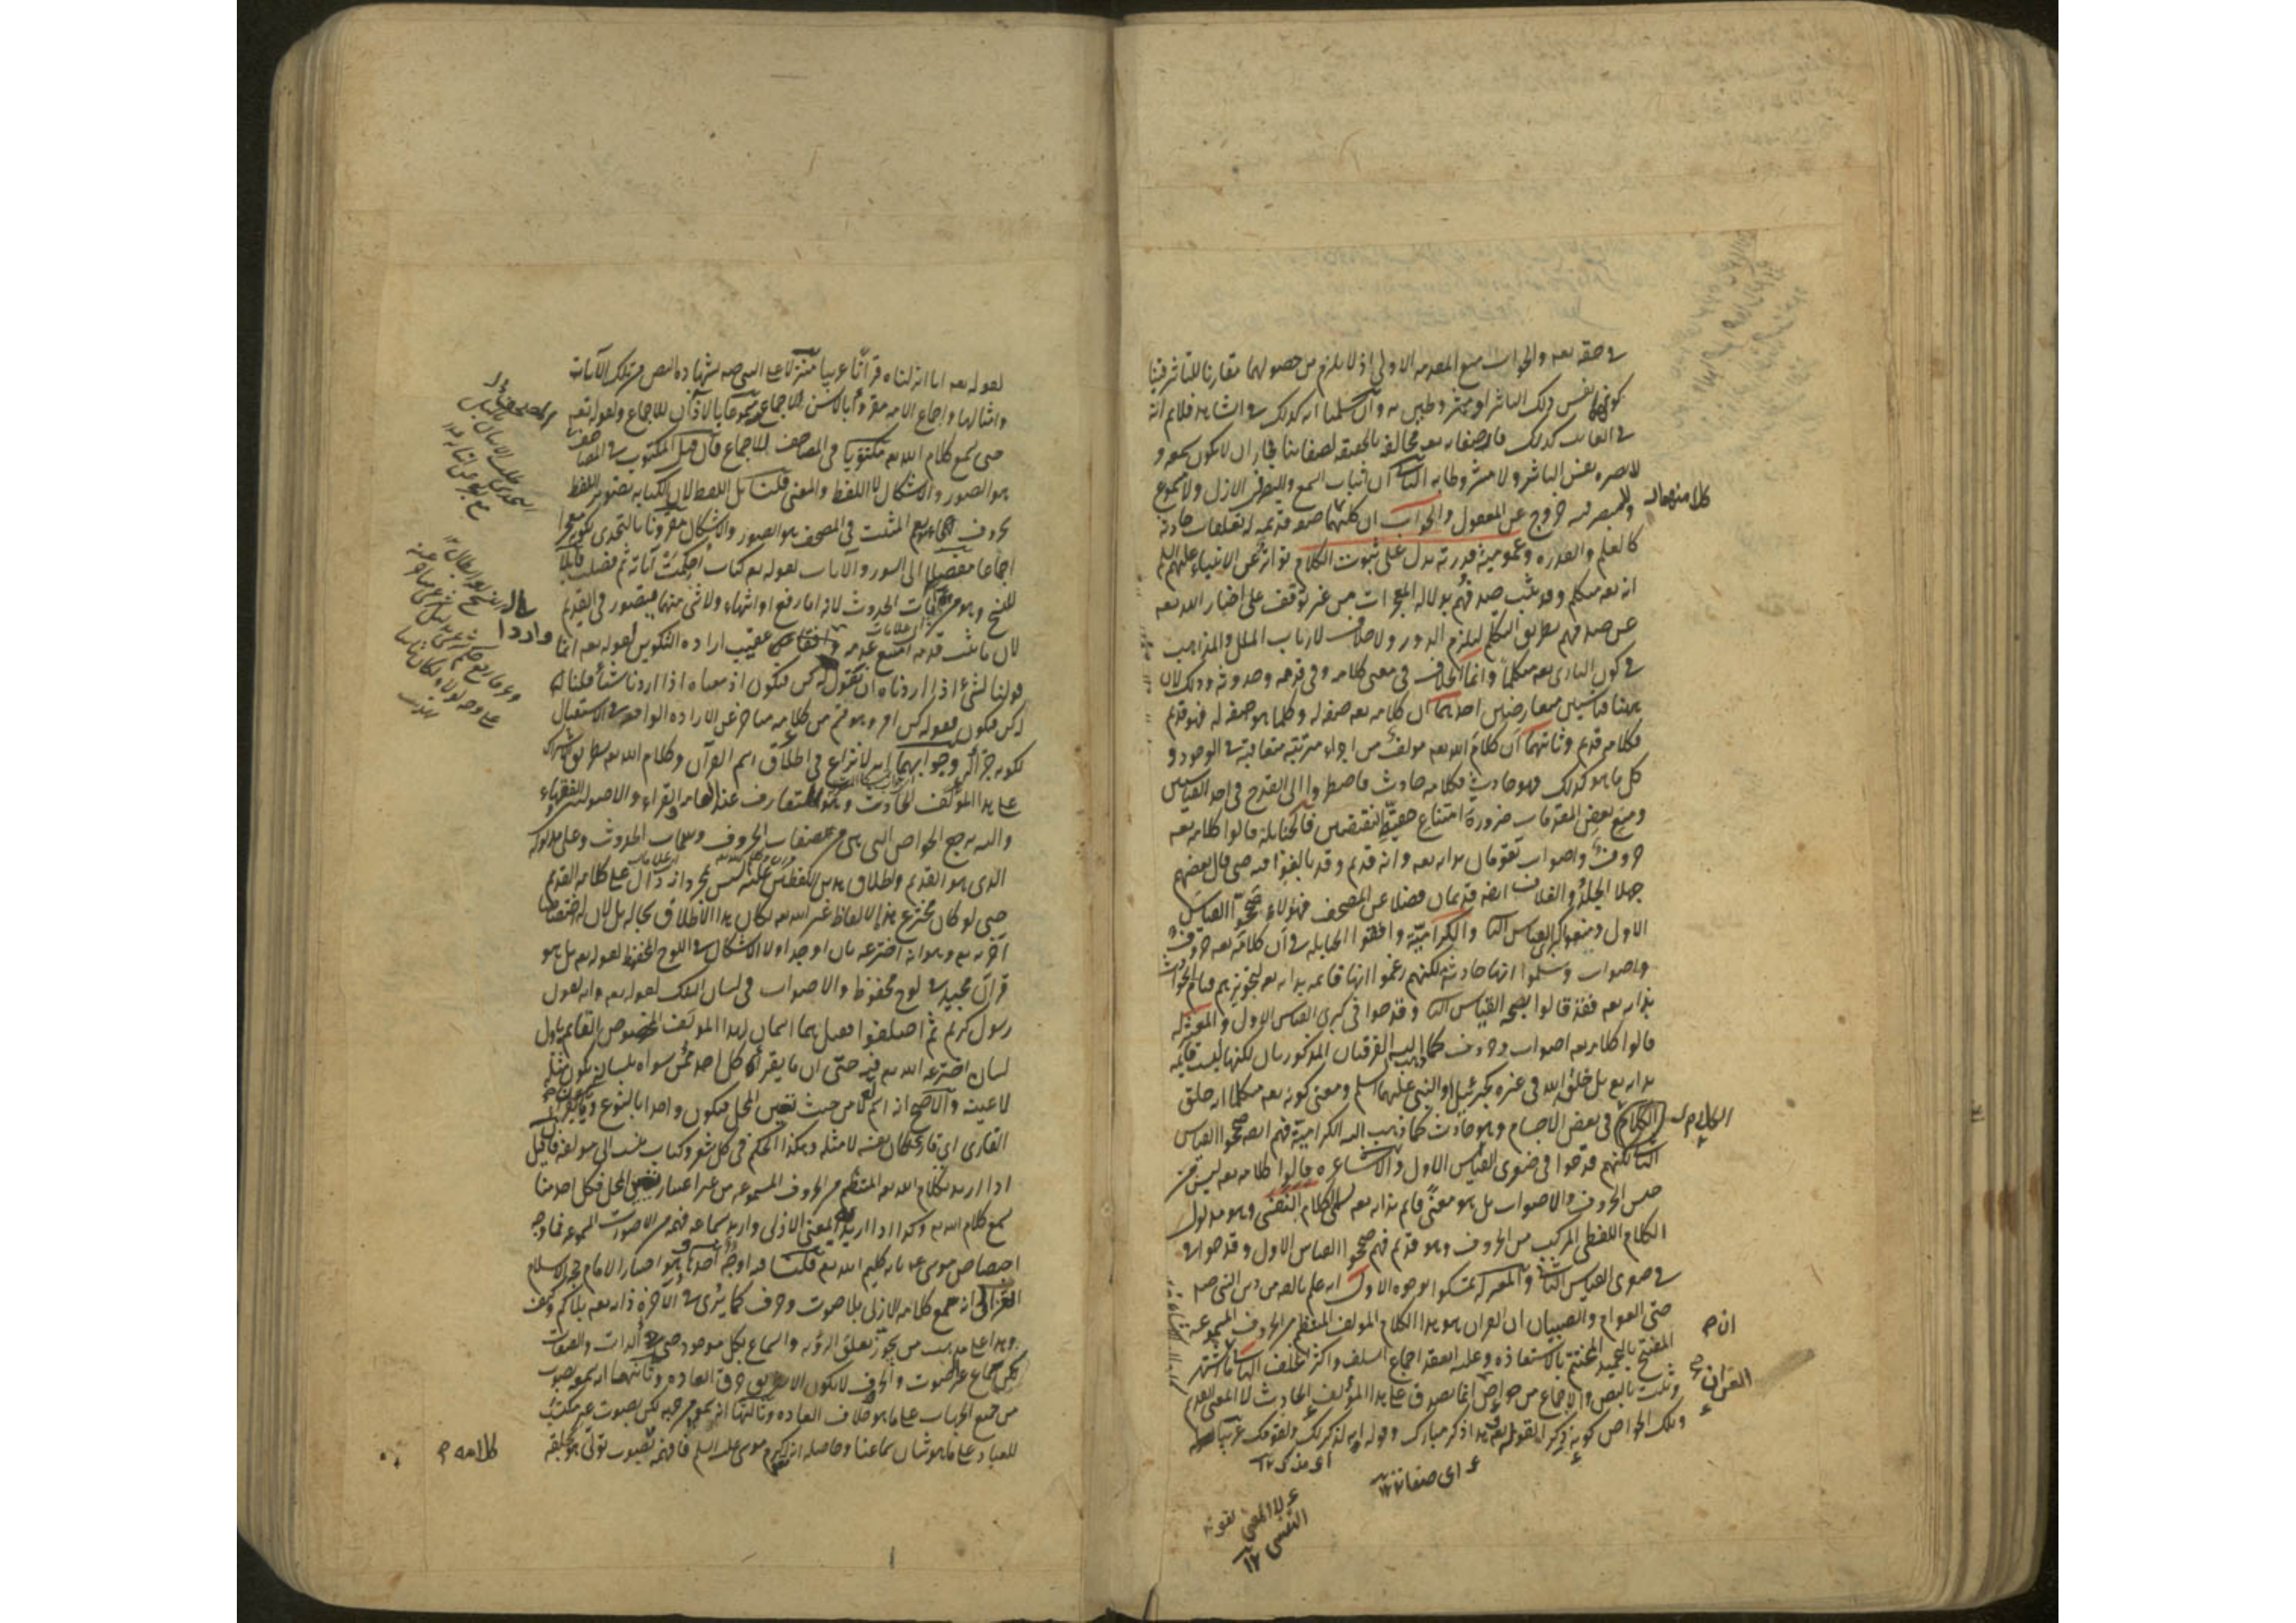 في حقه تعه والجواب منع المقدمة الاولى اذ لا يلزم من حصولهما مقارنا للتأثر فينا
كونهما نفس ذلك التأثر او مشروطين به وان سلمنا انه كذلك في الشاهد فلا نم انه
في الغائب كذلك فان صفاته تعه مخالفة بالحقيقة لصفاتنا فجاز ان لا يكون سمعه و
لا بصره نفس التأثر ولا مشروطا به الثاني ان اثبات السمع والبصر في الازل ولا مسموع
ولا مبصر فيه خروج عن المعقول والجواب ان كلا منهما صفة قديمة له تعلقات حادثة
كالعلم والقدرة وعمومية قدرته تدل على ثبوت الكلام تواتر عن الانبياء عليهم السلم
انه تعه متكلم وقد ثبت صدقهم بدلالة المعجزات من غير توقف على اخبار الله تعه
عن صدقهم بطريق التكلم ليلزم الدور ولا خلاف لارباب الملل والمذاهب
في كون الباري تعه متكلما وانما الخلاف في معنى كلامه وفي قدمه وحدوثه وذلك لان
ههنا قياسين متعارضين احدهما ان كلامه تعه صفة له وكلما هو صفة له فهو قديم
فكلامه قديم وثانيهما ان كلام الله تعه مؤلف من اجزاء مترتبة متعاقبة في الوجود و
كل ما هو كذلك فهو حادث فكلامه حادث فاضطروا الى القدح في احد القياسين
ومنع بعض المقدمات ضرورة امتناع حقية النقيضين فالحنابلة قالوا كلامه تعه
حروف واصوات تقومان بذاته تعه وانه قديم وقد بالغوا فيه حتى قال بعضهم
جهلا الجلد والغلاف ايضه قديمان فضلا عن المصحف فهؤلاء صححوا القياس
الاول ومنعوا كبرى القياس الثا والكرامية وافقوا الحنابلة في ان كلامه تعه حروف
واصوات وسلموا انها حادثة لكنهم زعموا انها قائمة بذاته تعه لتجويزهم قيام الحوادث
بذاته تعه فقد قالوا بصحة القياس الثا وقدحوا في كبرى القياس الاول والمعتزلة
قالوا كلامه تعه اصوات وحروف كما ذهب اليه الفرقتان المذكورتان لكنها ليست قائمة
بذاته تع بل خلق الله في غيره كجبرئيل او النبي عليهما السلم ومعنى كونه تعه متكلما انه خلق
الكلام في بعض الاجسام وهو حادث كما ذهب اليه الكرامية فهم ايضه صححوا القياس
الثا لكنهم قدحوا في صغرى القياس الاول والاشاعرة قالوا كلامه تعه ليس من
جنس الحروف والاصوات بل هو معنى قائم بذاته تعه يسمى الكلام النفسي وهو مدلول
الكلام اللفظي المركب من الحروف وهو قديم فهم صححوا القياس الاول وقدحوا
في صغرى القياس الثاني والمعتزلة تمسكوا بوجوه الاول انه علم بالضرورة من دين النبي صم
حتى العوام والصبيان ان القران هو هذا الكلام المؤلف المنتظم من الحروف المسموعة
المفتتح بالتحميد المختتم بالاستعاذة وعليه انعقد اجماع السلف واكثر الخلف الثا ما اشتهر
وثبت بالنص والاجماع من خواص انما يصدق على هذا المؤلف الحادث لا المعنى القديم
وتلك الخواص كونه ذكرا لقوله تعه هذا ذكر مبارك وقوله انه لذكر لك ولقومك عربيا
كلا منهما
الكلام
ان
القران
اى مذكر ١٢
اى صفاته ١٢
لا المعنى
النفسي ١٢
لقوله تعه انا انزلناه قرآنا عربيا منزلا على النبي صم بشهادة النص من تلك الآيات
وامثالها واجماع الامة مقروءا بالالسن للاجماع مسموعا بالآذان للاجماع ولقوله تعه
حتى يسمع كلام الله تعه مكتوبا في المصاحف للاجماع فان قيل المكتوب في المصاحف
هو الصور والاشكال لا اللفظ والمعنى قلنا بل اللفظ لان الكتابة تصوير اللفظ
بحروف هجائه نعم المثبت في المصحف هو الصور والاشكال مقرونا بالتحدي لكونه معجزا
اجماعا مفصلا الى السور والآيات لقوله تعه كتاب احكمت آياته ثم فصلت قابلا
للنسخ وهو من آيات الحدوث لانه اما رفع او انتهاء ولا شئ منهما يتصور في القديم
لان ما ثبت قدمه امتنع عدمه واقعا عقيب ارادة التكوين لقوله تعه انما
قولنا لشئ اذا اردناه ان نقول له كن فيكون اذ معناه اذا اردنا شيئا قلنا له
كن فيكون فقوله كن
لكونه جزاء وجوابهما انه لا نزاع في اطلاق اسم القرآن وكلام الله تعه بطريق الاشتراك
على هذا المؤلف الحادث وهو المتعارف عند العامة والقراء والاصوليين والفقهاء
واليه يرجع الخواص التي هي من صفات الحروف وسمات الحدوث وعلى مدلوله
الذي هو القديم واطلاق هذين اللفظين عليه ليس بمجرد انه دال على كلامه القديم
حتى لو كان مخترع هذه الالفاظ غير الله تعه لكان هذا الاطلاق بحاله بل لان له اختصاصا
آخر به تع وهو انه اخترعه بان اوجد اولا الاشكال في اللوح المحفوظ لقوله تعه بل هو
قرآن مجيد في لوح محفوظ والاصوات في لسان الملك لقوله تعه وانه لقول
رسول كريم ثم اختلفوا فقيل هما اسمان لهذا المؤلف المخصوص القائم باول
لسان اخترعه الله تعه فيه حتى ان ما يقرأه كل احد ممن سواه بلسانه يكون مثله
لا عينه والاصح انه اسم له لا من حيث تعين المحل فيكون واحدا بالنوع ويكون ما يقرأه
القارى اى قارى كان نفسه لا مثله وهكذا الحكم في كل شعر وكتاب ينسب الى مؤلفه فان قيل
اذا اريد بكلام الله تعه المنتظم من الحروف المسموعة من غير اعتبار تعين المحل فكل احد منا
يسمع كلام الله تعه وكذا اذا اريد به المعنى الازلى واريد بسماعه فهمه من الاصوات المسموعة فما وجه
اختصاص موسى عم بانه كليم الله تع قلنا فيه اوجه احدها وهو اختيار الامام حجة الاسلام
الغزالى انه سمع كلامه الازلى بلا صوت وحرف كما يرى في الآخرة ذاته تعه بلا كم وكيف
وهذا على مذهب من يجوز تعلق الرؤية والسماع بكل موجود حتى الذات والصفات
لكن سماع غير الصوت والحرف لا يكون الا بطريق خرق العادة وثانيها انه سمعه بصوت
من جميع الجهات على ما هو خلاف العادة وثالثها انه سمع من جهة لكن بصوت غير مكتسب
للعباد على ما هو شأن سماعنا وحاصله انه اكرم موسى عليه السلم فافهمه كلامه بصوت تولى بخلقه
واردا
كلامه